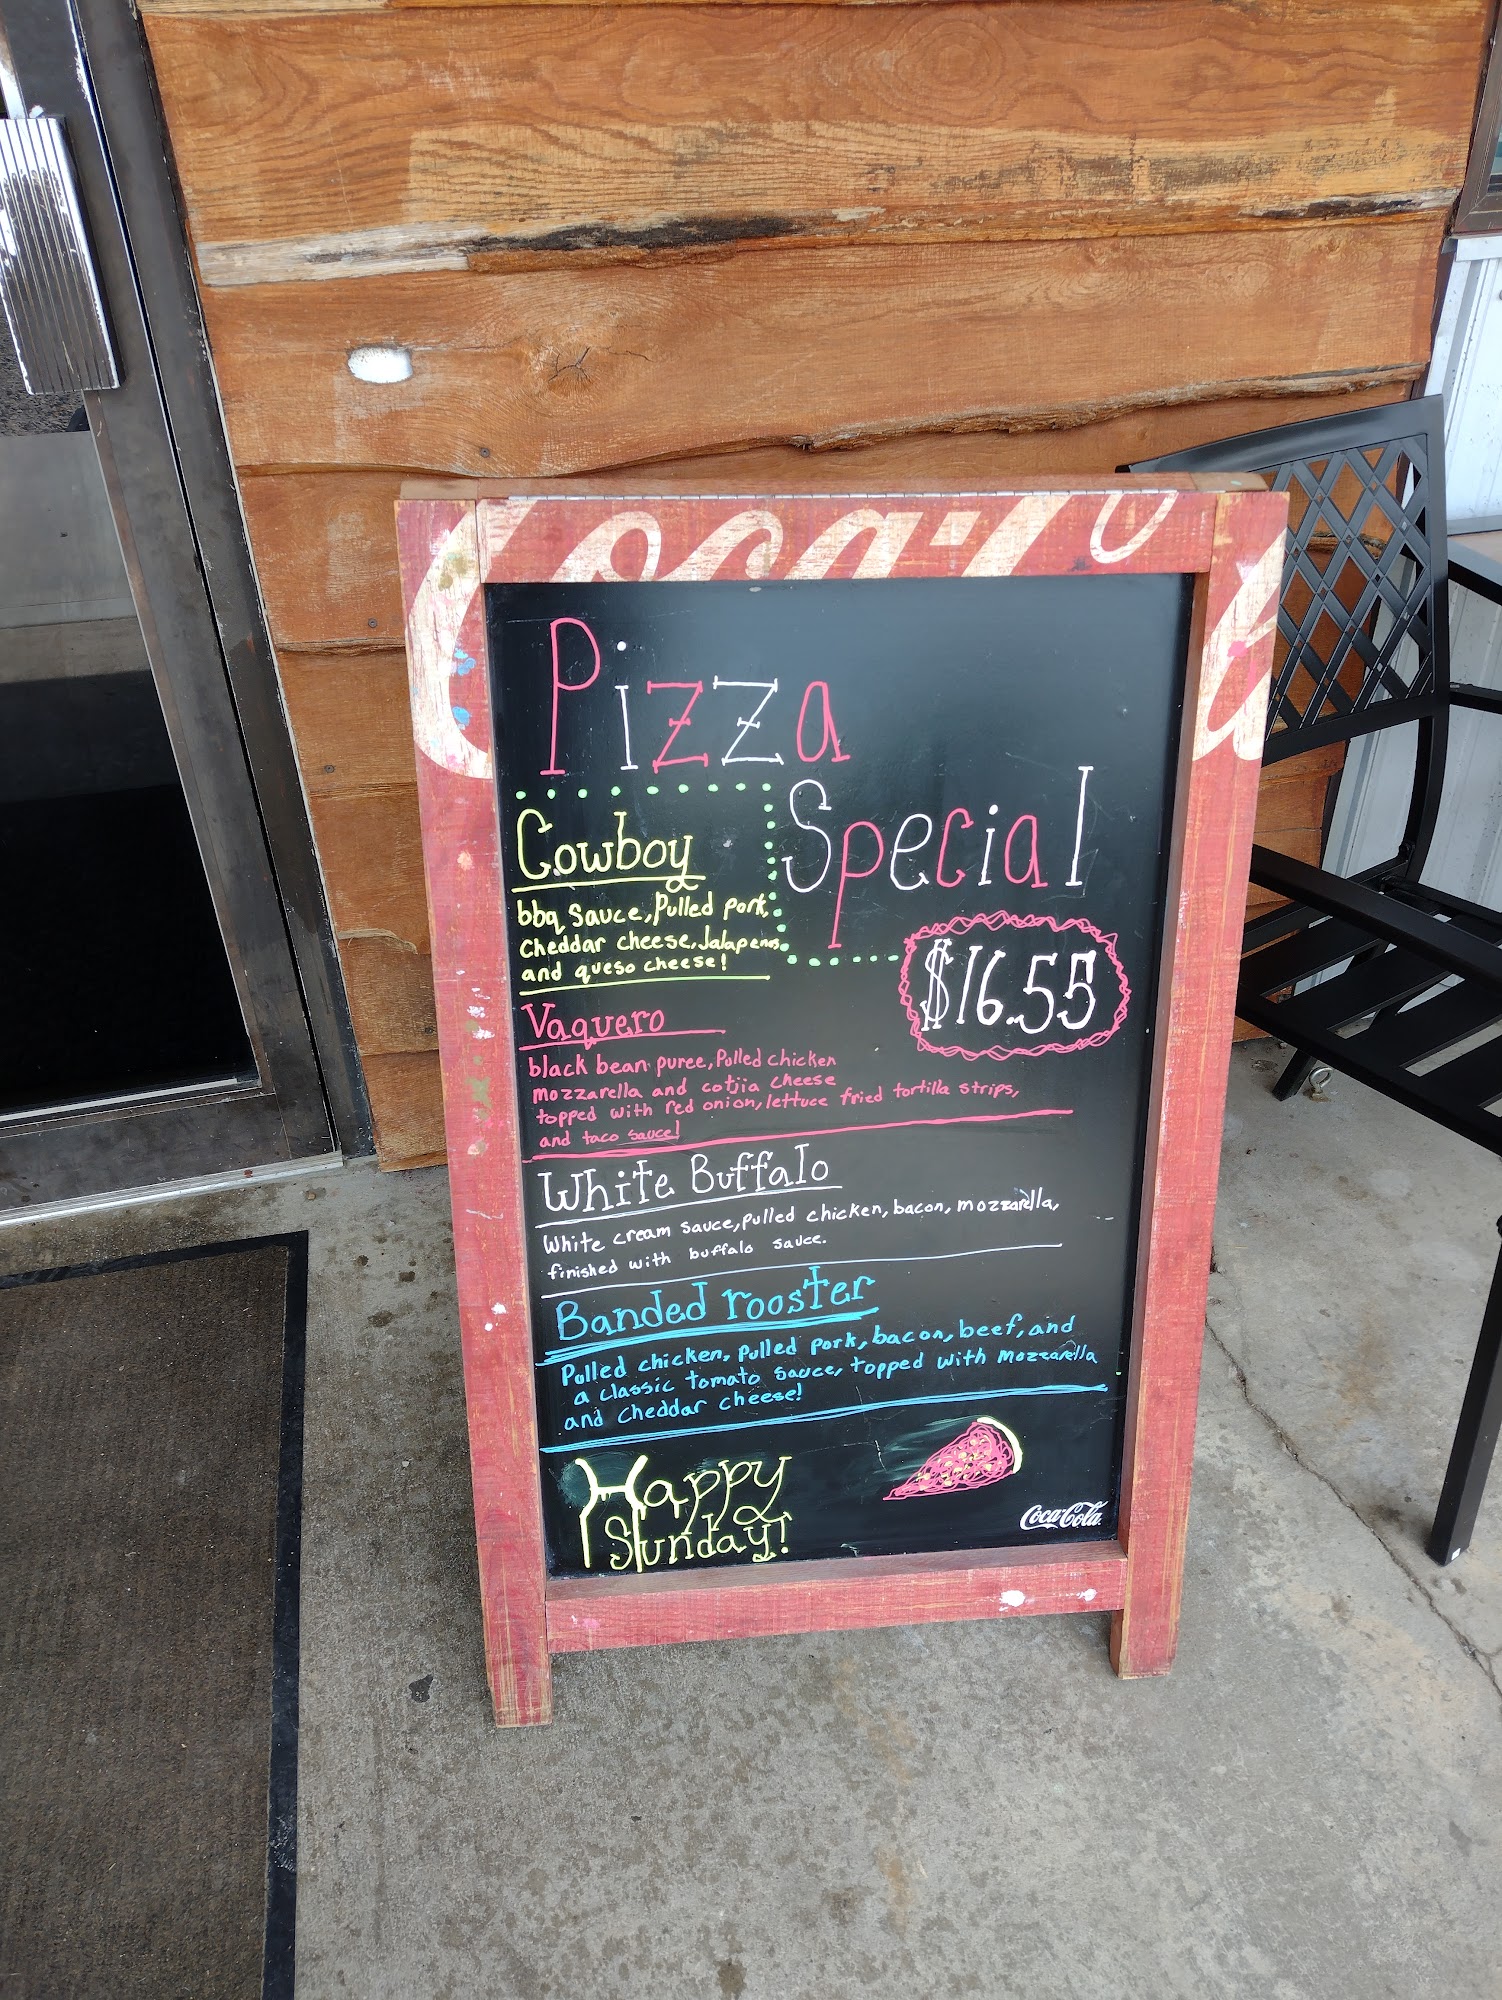 Coca-Co
Pizza
Special
$16.55
Cowboy
bbq sauce, Pulled pork,
cheddar cheese, Jalapenos,
and queso cheese!
Vaquero
black bean puree, Pulled chicken
mozzarella and cotjia cheese
topped with red onion, lettuce fried tortilla strips,
and taco sauce!
White Buffalo
White cream sauce, pulled chicken, bacon, mozzarella,
finished with buffalo sauce.
Banded rooster
Pulled chicken, pulled pork, bacon, beef, and
a classic tomato sauce, topped with mozzarella
and cheddar cheese!
Happy
Sunday!
Coca-Cola